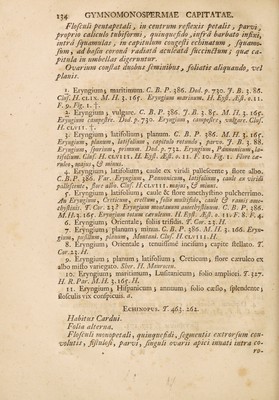 134 GYMNOMONOSPERMÆ CAPITATÆ.
Flosculi pentapetali, in centrum reflexis petalis, parvi,
proprio caliculo tubiformi, quinquefido, infrà barbato infixi,
intrà squamulas, in capitulum congesti echinatum, squamo-
sum, ad basim coronâ radiatâ aculeatâ succinctum; quæ ca-
pitula in umbellas digeruntur.
Ovarium constat duobus seminibus, foliatis aliquando, vel
planis.
1. Eryngium; maritimum. C. B. P. 386. Dod. p. 730. J. B. 3. 86.
Clus. H. CLIX. M. H. 3. 165. Eryngium marinum. H. Eyst. Æst. o. 11.
F. 9. Fig. 1. †.
2. Eryngium; vulgare. C. B. P. 386. J. B. 3. 85. M. H. 3. 165.
Eryngium campestre. Dod. p. 730. Eryngium, campestre, vulgare. Clus.
H. CLVII. †.
3. Eryngium; latifolium; planum. C. B. P. 386. M. H. 3. 165.
Eryngium, planum, latifolium, capitulo rotundo, parvo. J. B. 3. 88.
Eryngium, spurium, primum. Dod. p. 732. Eryngium, Pannonicum, la-
tifolium. Clus. H. CLVIII. H. Eyst. Æst. o. 11. F. 10. Fig. 1. Flore cæ-
ruleo, majus, & minus.
4. Eryngium; latifolium; caule ex viridi pallescente; flore albo.
C. B. P. 386. Var. Eryngium, Pannonicum, latifolium, caule ex viridi
pallescente, flore albo. Clus. H. CLVIII. majus, & minus.
5. Eryngium; latifolium; caule & flore amethystino pulcherrimo.
An Eryngium, Creticum, erectum, folio multifido, caule & ramis ame-
thystinis. T. Cor. 23? Eryngium montanum amethystinum. C. B. P. 386.
M. H. 3. 165. Eryngium totum cæruleum. H. Eyst. Æst. o. 11. F. 8. F. 4.
6. Eryngium; Orientale; foliis trifidis. T. Cor. 23. H.
7. Eryngium; planum; minus. C. B. P. 386. M. H. 3. 166. Eryn-
gium, pusillum, planum, Moutoni. Clus. H. CLVIII. H.
8. Eryngium; Orientale; tenuissimè incisum; capite stellato. T.
Cor. 23. H.
9. Eryngium; planum; latifolium; Creticum; flore cæruleo ex
albo misto variegato. Sher. H. Maurocen.
10. Eryngium; maritimum; Lusitanicum; folio amplieri. T. 327.
H. R. Par. M. H. 3. 165. H.
11. Eryngium; Hispanicum; annuum; folio cæsio, splendente;
flosculis vix conspicuis. a.
ECHINOPUS. T. 463. 262.
Habitus Cardui.
Folia alterna.
Flosculi monopetali, quinquefidi, segmentis extrorsum con-
volutis, fistulosi, parvi, singuli ovarii apici innati intra co-
ro-